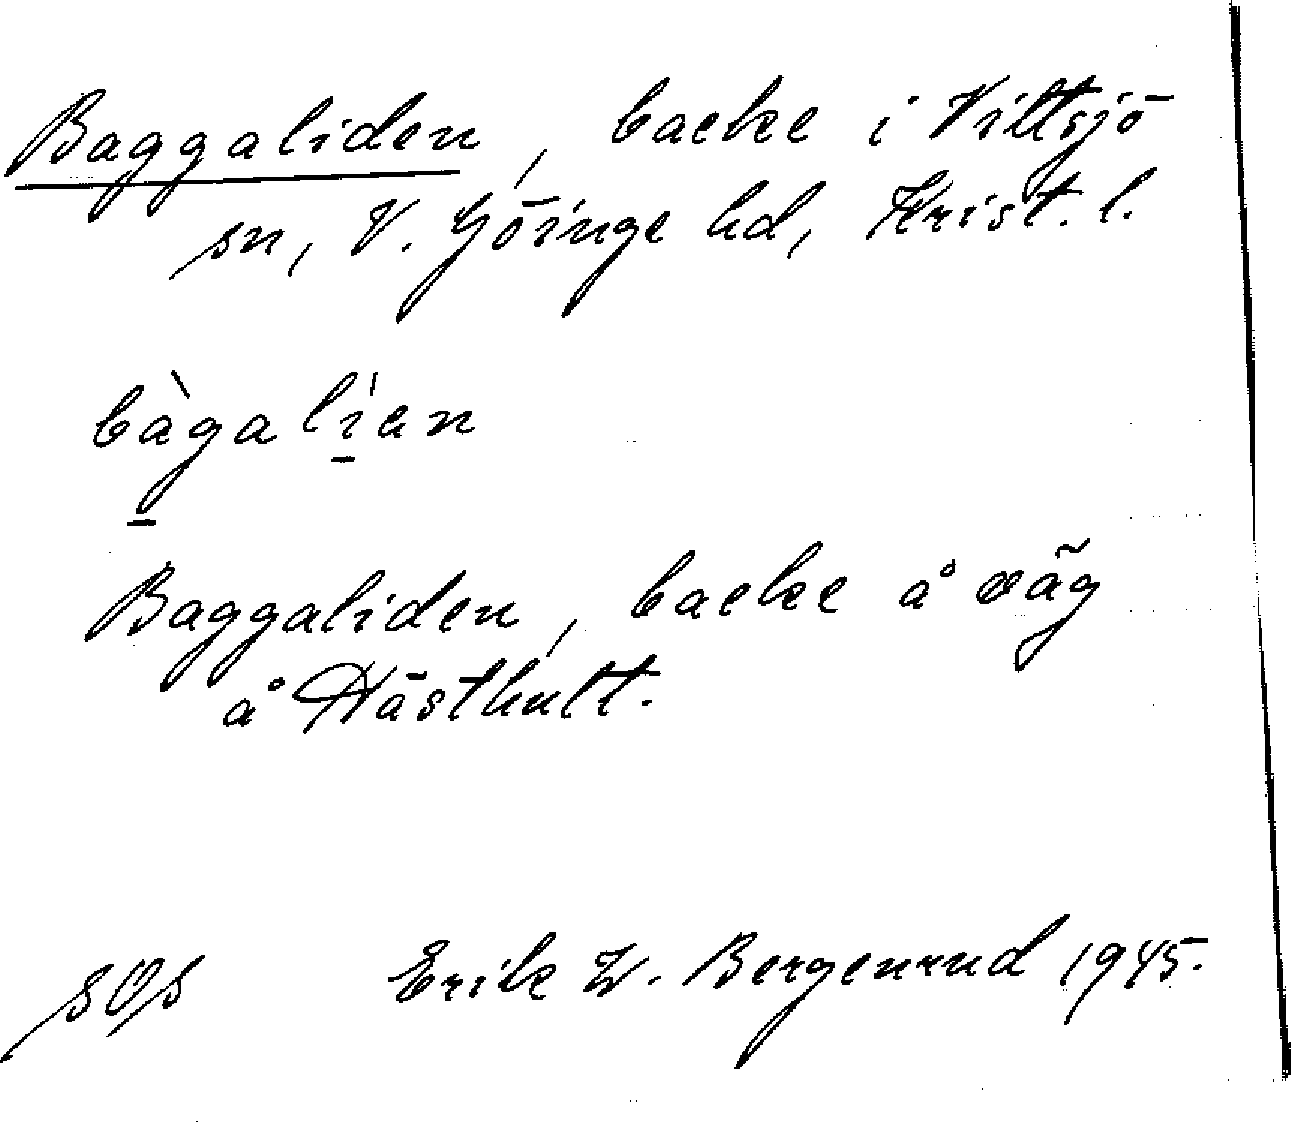 Baggaliden, backe i Vittsjö
sn, V. Göinge hd, Krist. l.
bàgalíen
Baggaliden, backe å väg
å Hästhult.
Erik W. Bergenrud 1945.